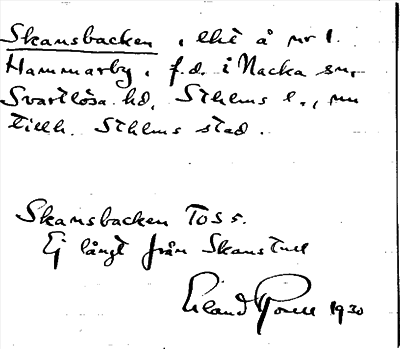 Skansbacken, lht å nr 1.
Hammarby, f.d. i Nacka sn,
Svartlösa hd, Sthlms l., nu
tillh. Sthlms stad.
Skansbacken TOS 5.
Ej långt från Skanstull
Erland 1930